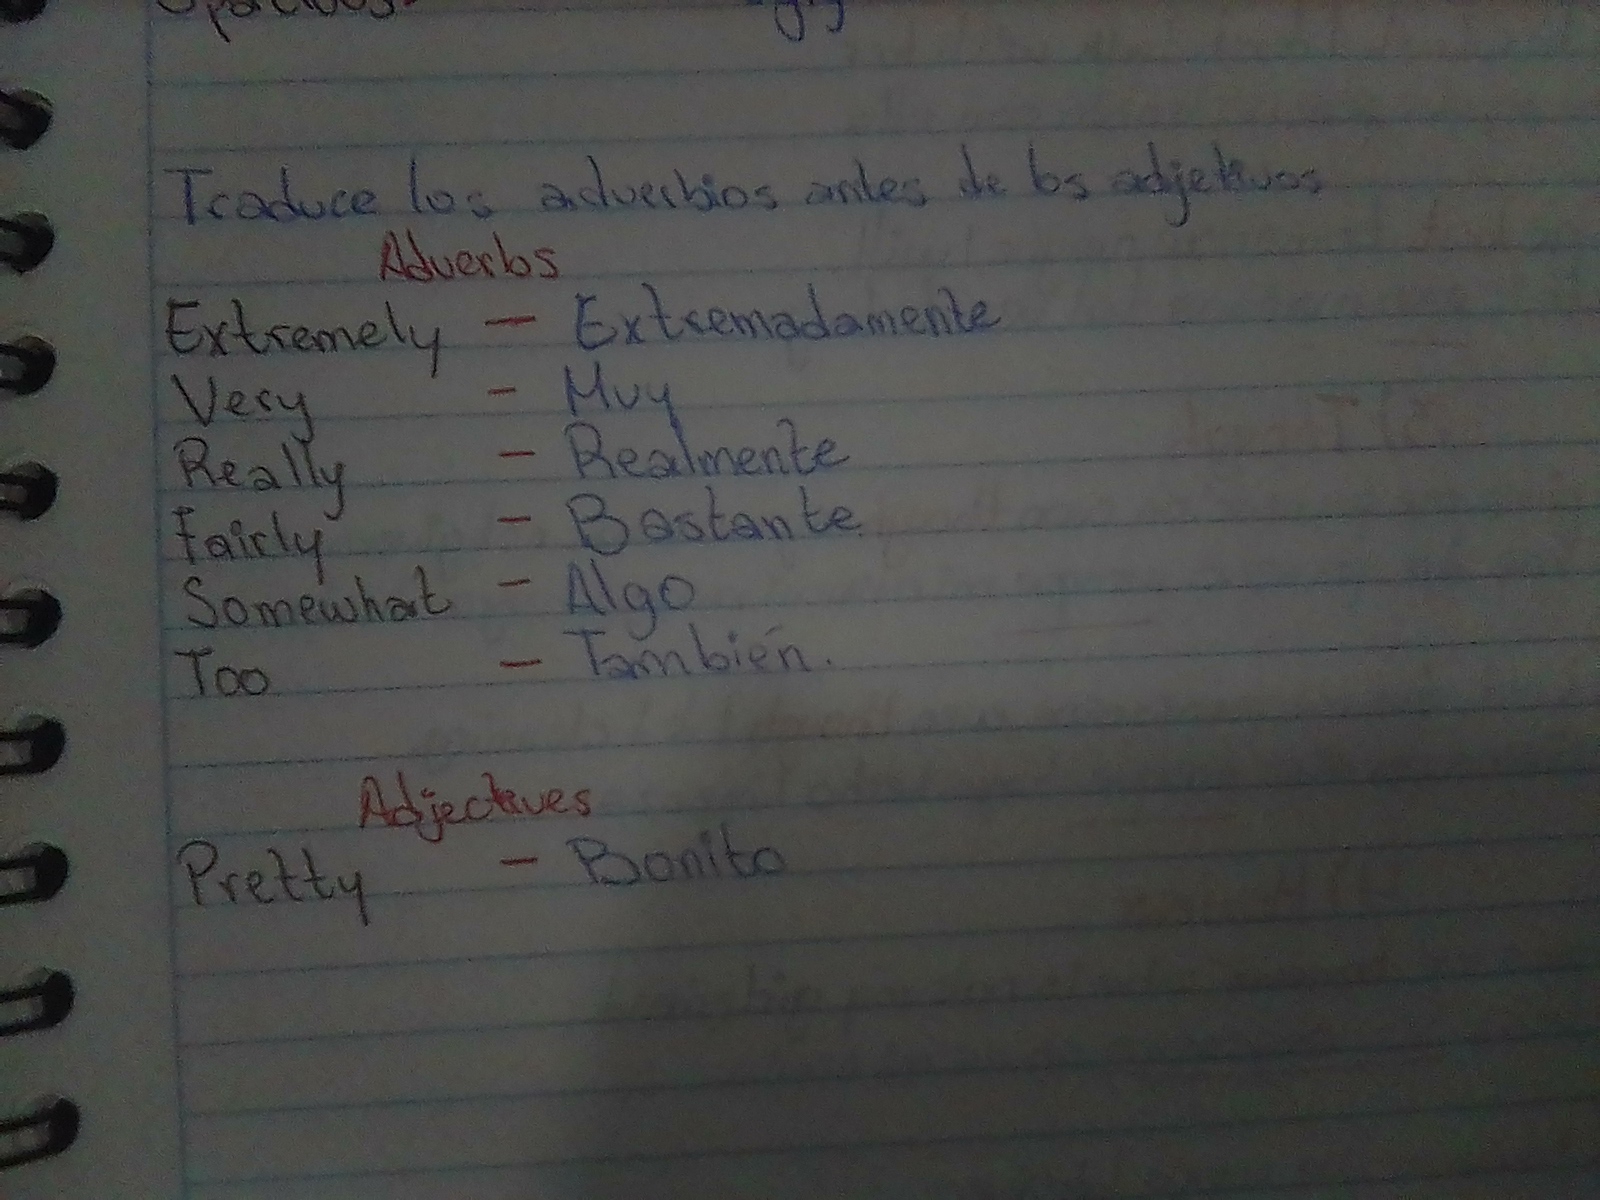 Spacious.
Traduce los adverbios antes de los adjetivos
Adverbs
Extremely — Extremadamente
Very - Muy
Really - Realmente
Fairly - Bastante
Somewhat - Algo
Too - También.
Adjectives
Pretty - Bonito